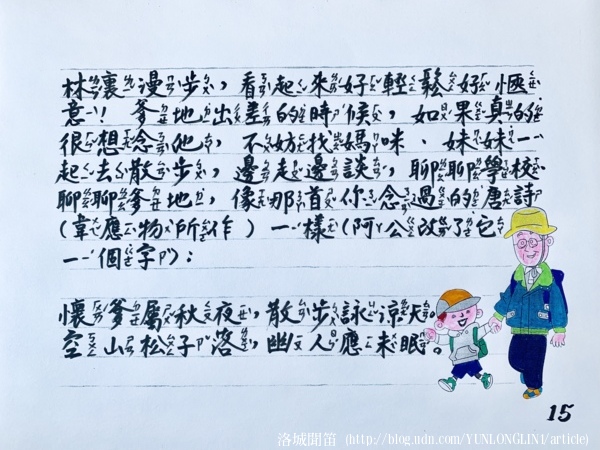 林裏漫步，看起來好輕鬆好愜
意！爹地出差的時候，如果真的
很想念他，不妨找媽咪、妹妹一
起去散步，邊走邊談，聊聊學校
聊聊爹地，像那首你念過的唐詩
(韋應物所作)一樣(阿公改了它
一個字)：
懷爹屬秋夜，散步詠涼天。
空山松子落，幽人應未眠。
15
洛城聞笛 (http://blog.udn.com/YUNLONGLIN1/article)